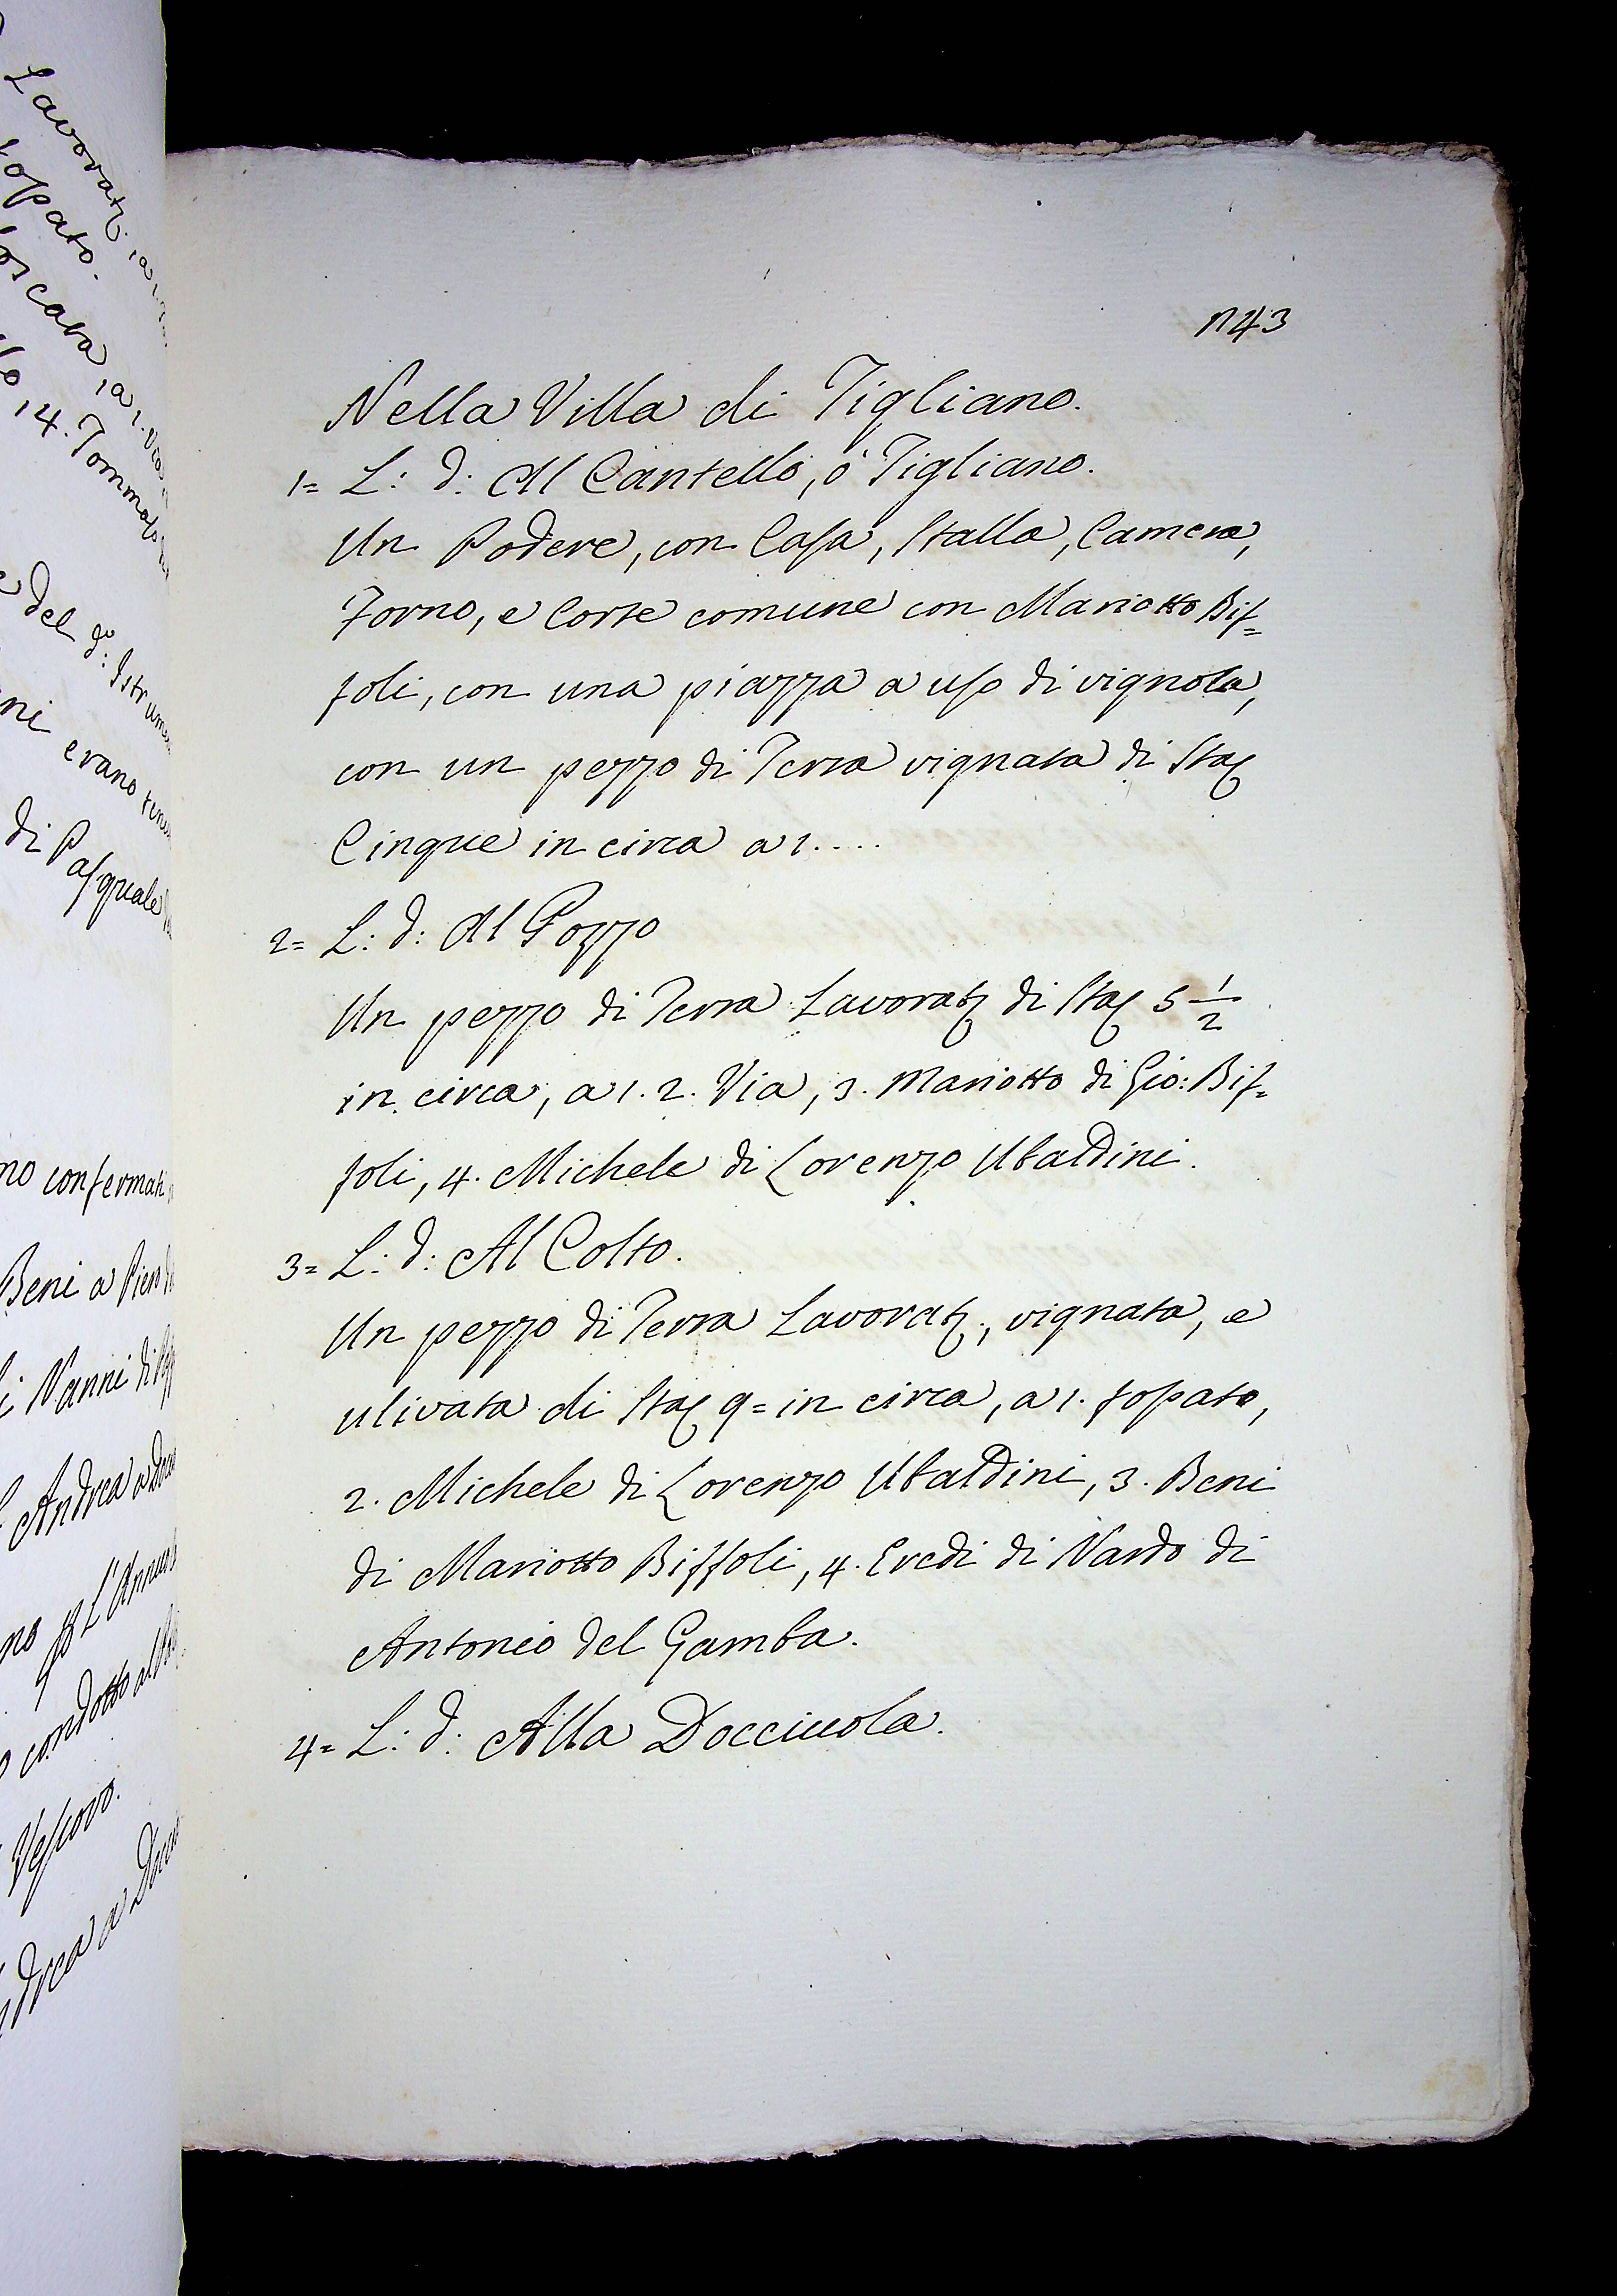 Lavorat;
fossato.
14. Tommaso
del d:o Istrum
erano
di Pasquale
no confermati
Beni a Piero
Nanni di
Andrea a
no p L'Annua
condotto al
Vescovo.
drea a
n43
Nella Villa di Tigliano.
1= L: d: Al Cantello, ò Tigliano.
Un Podere, con Casa, Stalla, Camera,
Forno, e Corte comune con Mariotto Bif=
foli, con una piazza a uso di vignola,
con un pezzo di Terra vignata di Sta;
Cinque in circa a 1....
2= L: d: Al Pozzo
Un pezzo di Terra Lavorat; di Sta; 5 1/2
in circa, a 1. 2. Via, 3. Mariotto di Gio: Bif=
foli, 4. Michele di Lorenzo Ubaldini.
3= L: d: Al Colto.
Un pezzo di Terra Lavorat;, vignata, e
ulivata di Sta; 9= in circa, a 1. fossato,
2. Michele di Lorenzo Ubaldini, 3. Beni
di Mariotto Biffoli, 4. Eredi di Nardo di
Antonio del Gamba.
4= L: d: Alla Docciuola.